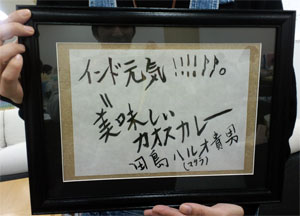 インド元気!!!!!♪♪。
美味しい
カオスカレー
田島ハルオ貴男